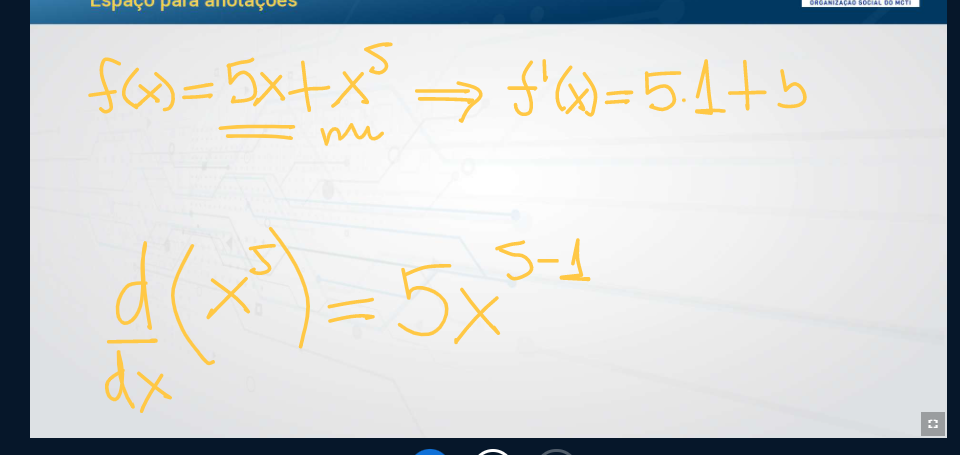 Espaço para anotações
ORGANIZAÇÃO SOCIAL DO MCTI
f(x) = 5x + x⁵ ⟹ f'(x) = 5.1 + 5
d/dx (x⁵) = 5x⁵⁻¹